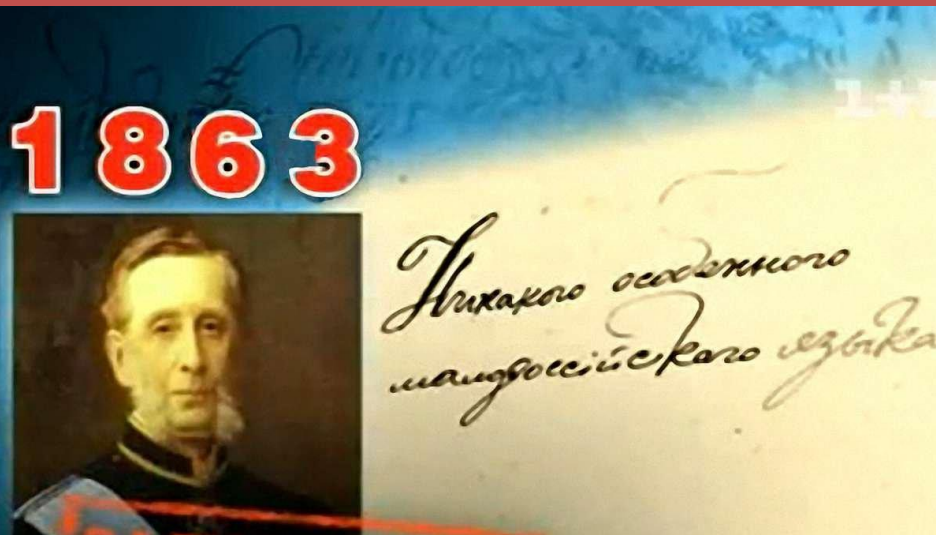 1+1
1863
Никакого особенного
малороссійскаго языка